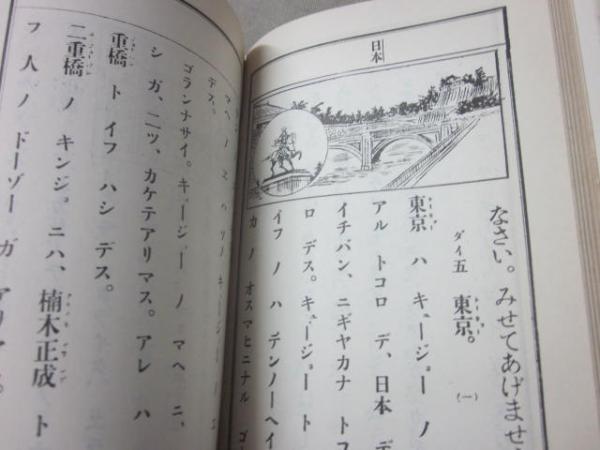 日本
なさい。みせてあげませ
ダイ五 東京。(一)
東京 ハ キュージョー ノ
アル トコロ デ、日本 デ
イチバン、ニギヤカナ トコ
ロ デス。キュージョー ト
イフ ノ ハ テンノーヘイ
カ ノ オスマヒニナル ゴ
デス。
ゴランナサイ。キュージョー ノ マヘ ニ、
シ ガ、二ツ、カケテアリマス。アレ ハ
二重橋 ト イフ ハシ デス。
二重橋 ノ キンジョ ニハ、楠木正成 ト
フ 人 ノ ドーゾー ガ アリマス。